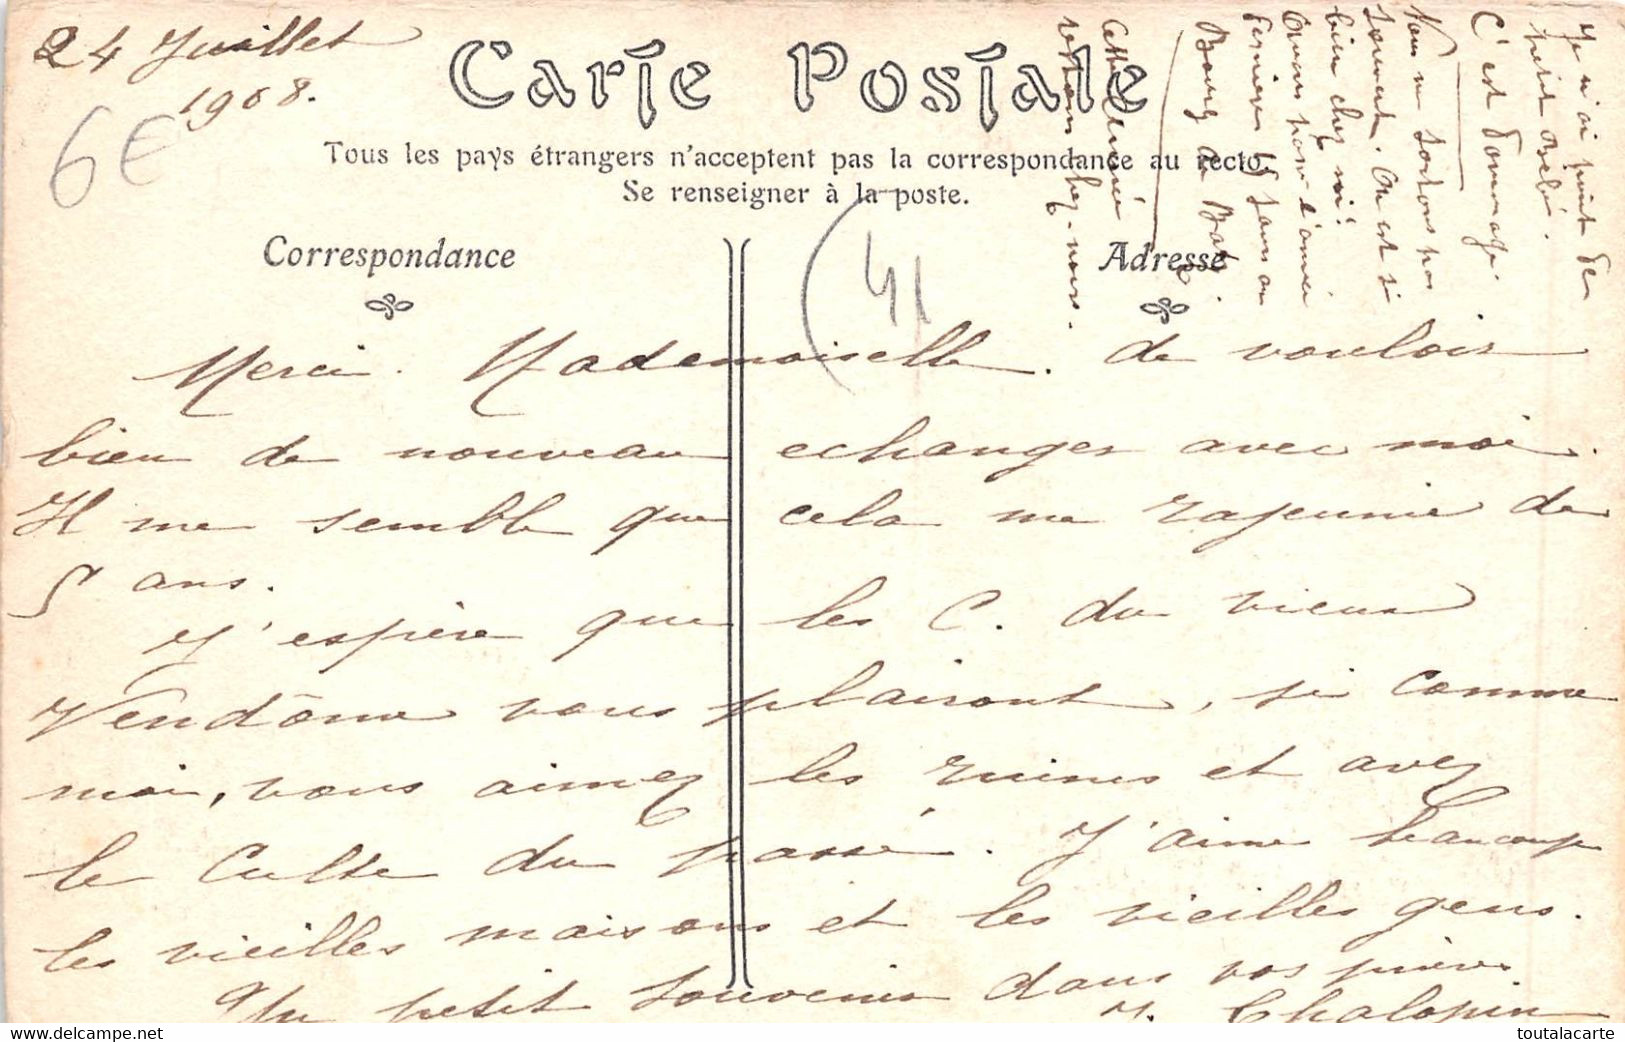 24 Juillet
1908.
6€
Carte Postale
Tous les pays étrangers n'acceptent pas la correspondance au recto.
Se renseigner à la poste.
Correspondance
Adresse
41
Merci Mademoiselle. de vouloir
bien de nouveau echanger avec moi.
Il me semble que cela me rajeunie de
5 ans.
J'espère que les C. du vieux
Vendôme vous plairont, si comme
moi, vous aimez les ruines et avez
le Culte du passé. J'aime beaucoup
les vieilles maisons et les vieilles gens.
Un petit souvenir dans vos prières
M. Chalopin
Je n'ai point de
petit bébé.
C'est dommage.
Nous ne sortons pas
souvent. On est si
bien chez soi!
Avons passé l'année
dernière 15 jours au
Bourg de Batz.
Cette année
restons chez-nous.
toutalacarte